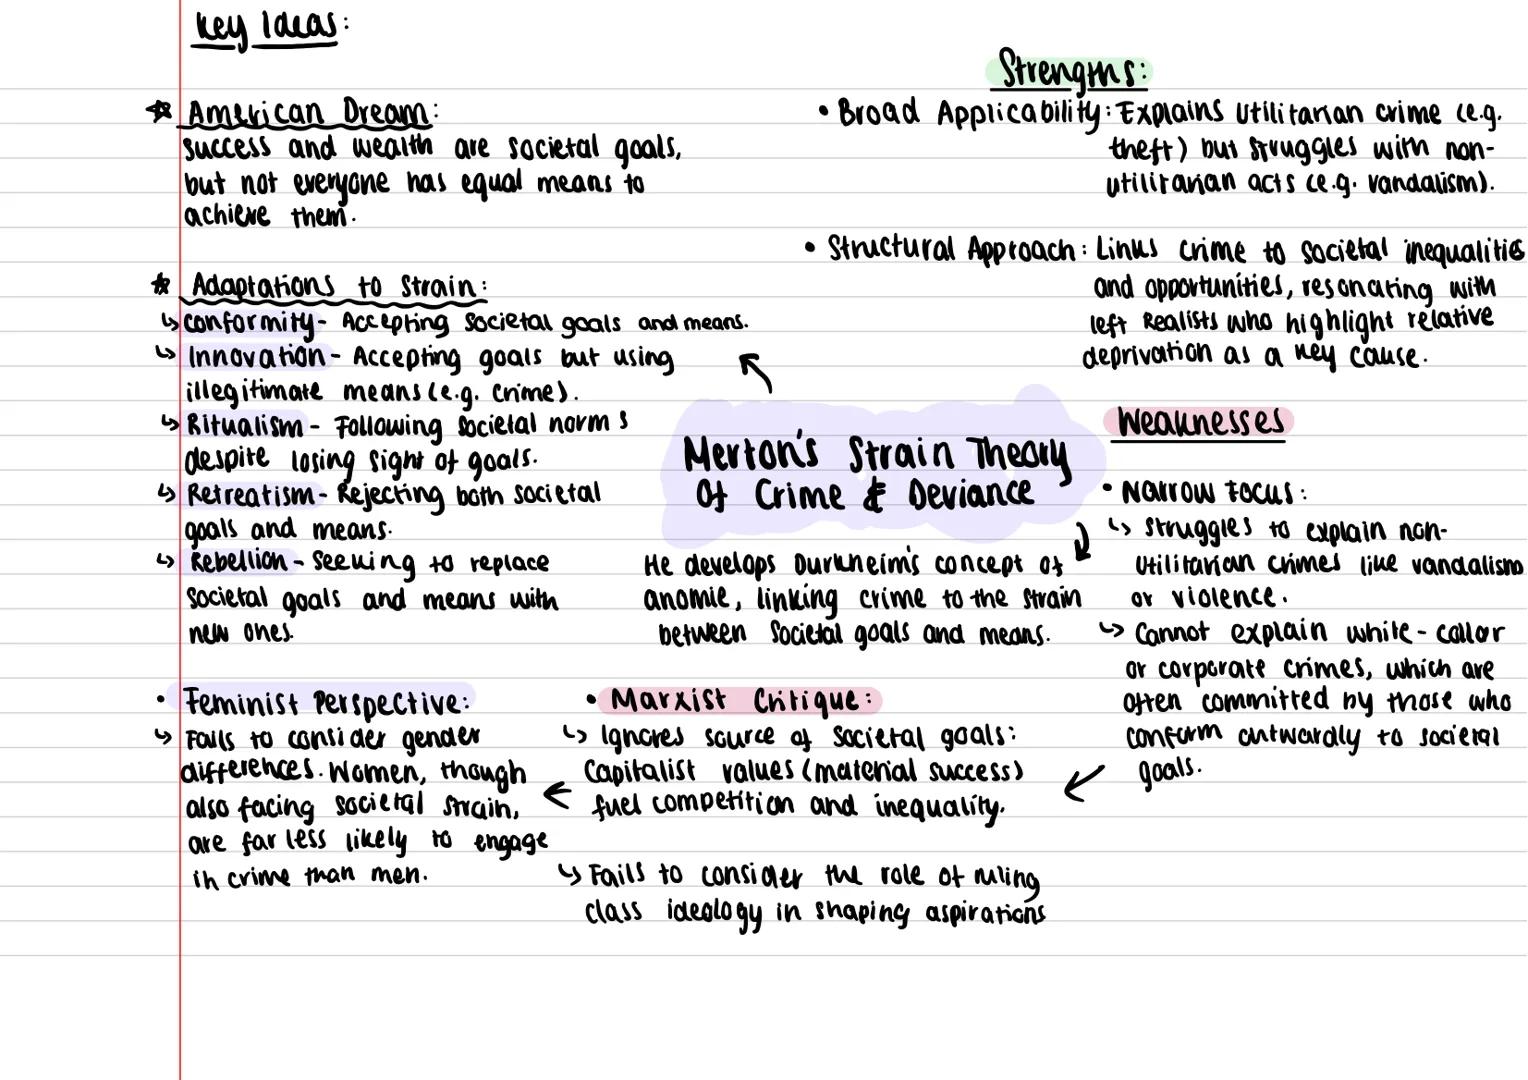 Key Ideas:
American Dream:
success and wealth are societal goals,
but not everyone has equal means to
achieve them.
Adaptations to Strain:
Conformity - Accepting societal goals and means.
Innovation - Accepting goals but using
illegitimate means (e.g. crime).
Ritualism - Following societal norms
despite losing sight of goals.
Retreatism - Rejecting both societal
goals and means.
Rebellion - Seeking to replace
societal goals and means with
new ones.
• Feminist Perspective:
Fails to consider gender
differences. Women, though
also facing societal strain,
are far less likely to engage
in crime than men.
Merton's Strain Theory
Of Crime & Deviance
He develops Durkheim's concept of
anomie, linking crime to the strain
between societal goals and means.
• Marxist Critique:
Ignores source of societal goals:
Capitalist values (material success)
fuel competition and inequality.
Fails to consider the role of ruling
class ideology in shaping aspirations
Strengths:
• Broad Applicability: Explains utilitarian crime (e.g.
theft) but struggles with non-
utilitarian acts (e.g. vandalism).
• Structural Approach: Links crime to societal inequalities
and opportunities, resonating with
left Realists who highlight relative
deprivation as a key cause.
Weaknesses
• Narrow Focus:
struggles to explain non-
utilitarian crimes like vandalism
or violence.
Cannot explain white-collar
or corporate crimes, which are
often committed by those who
conform outwardly to societal
goals.